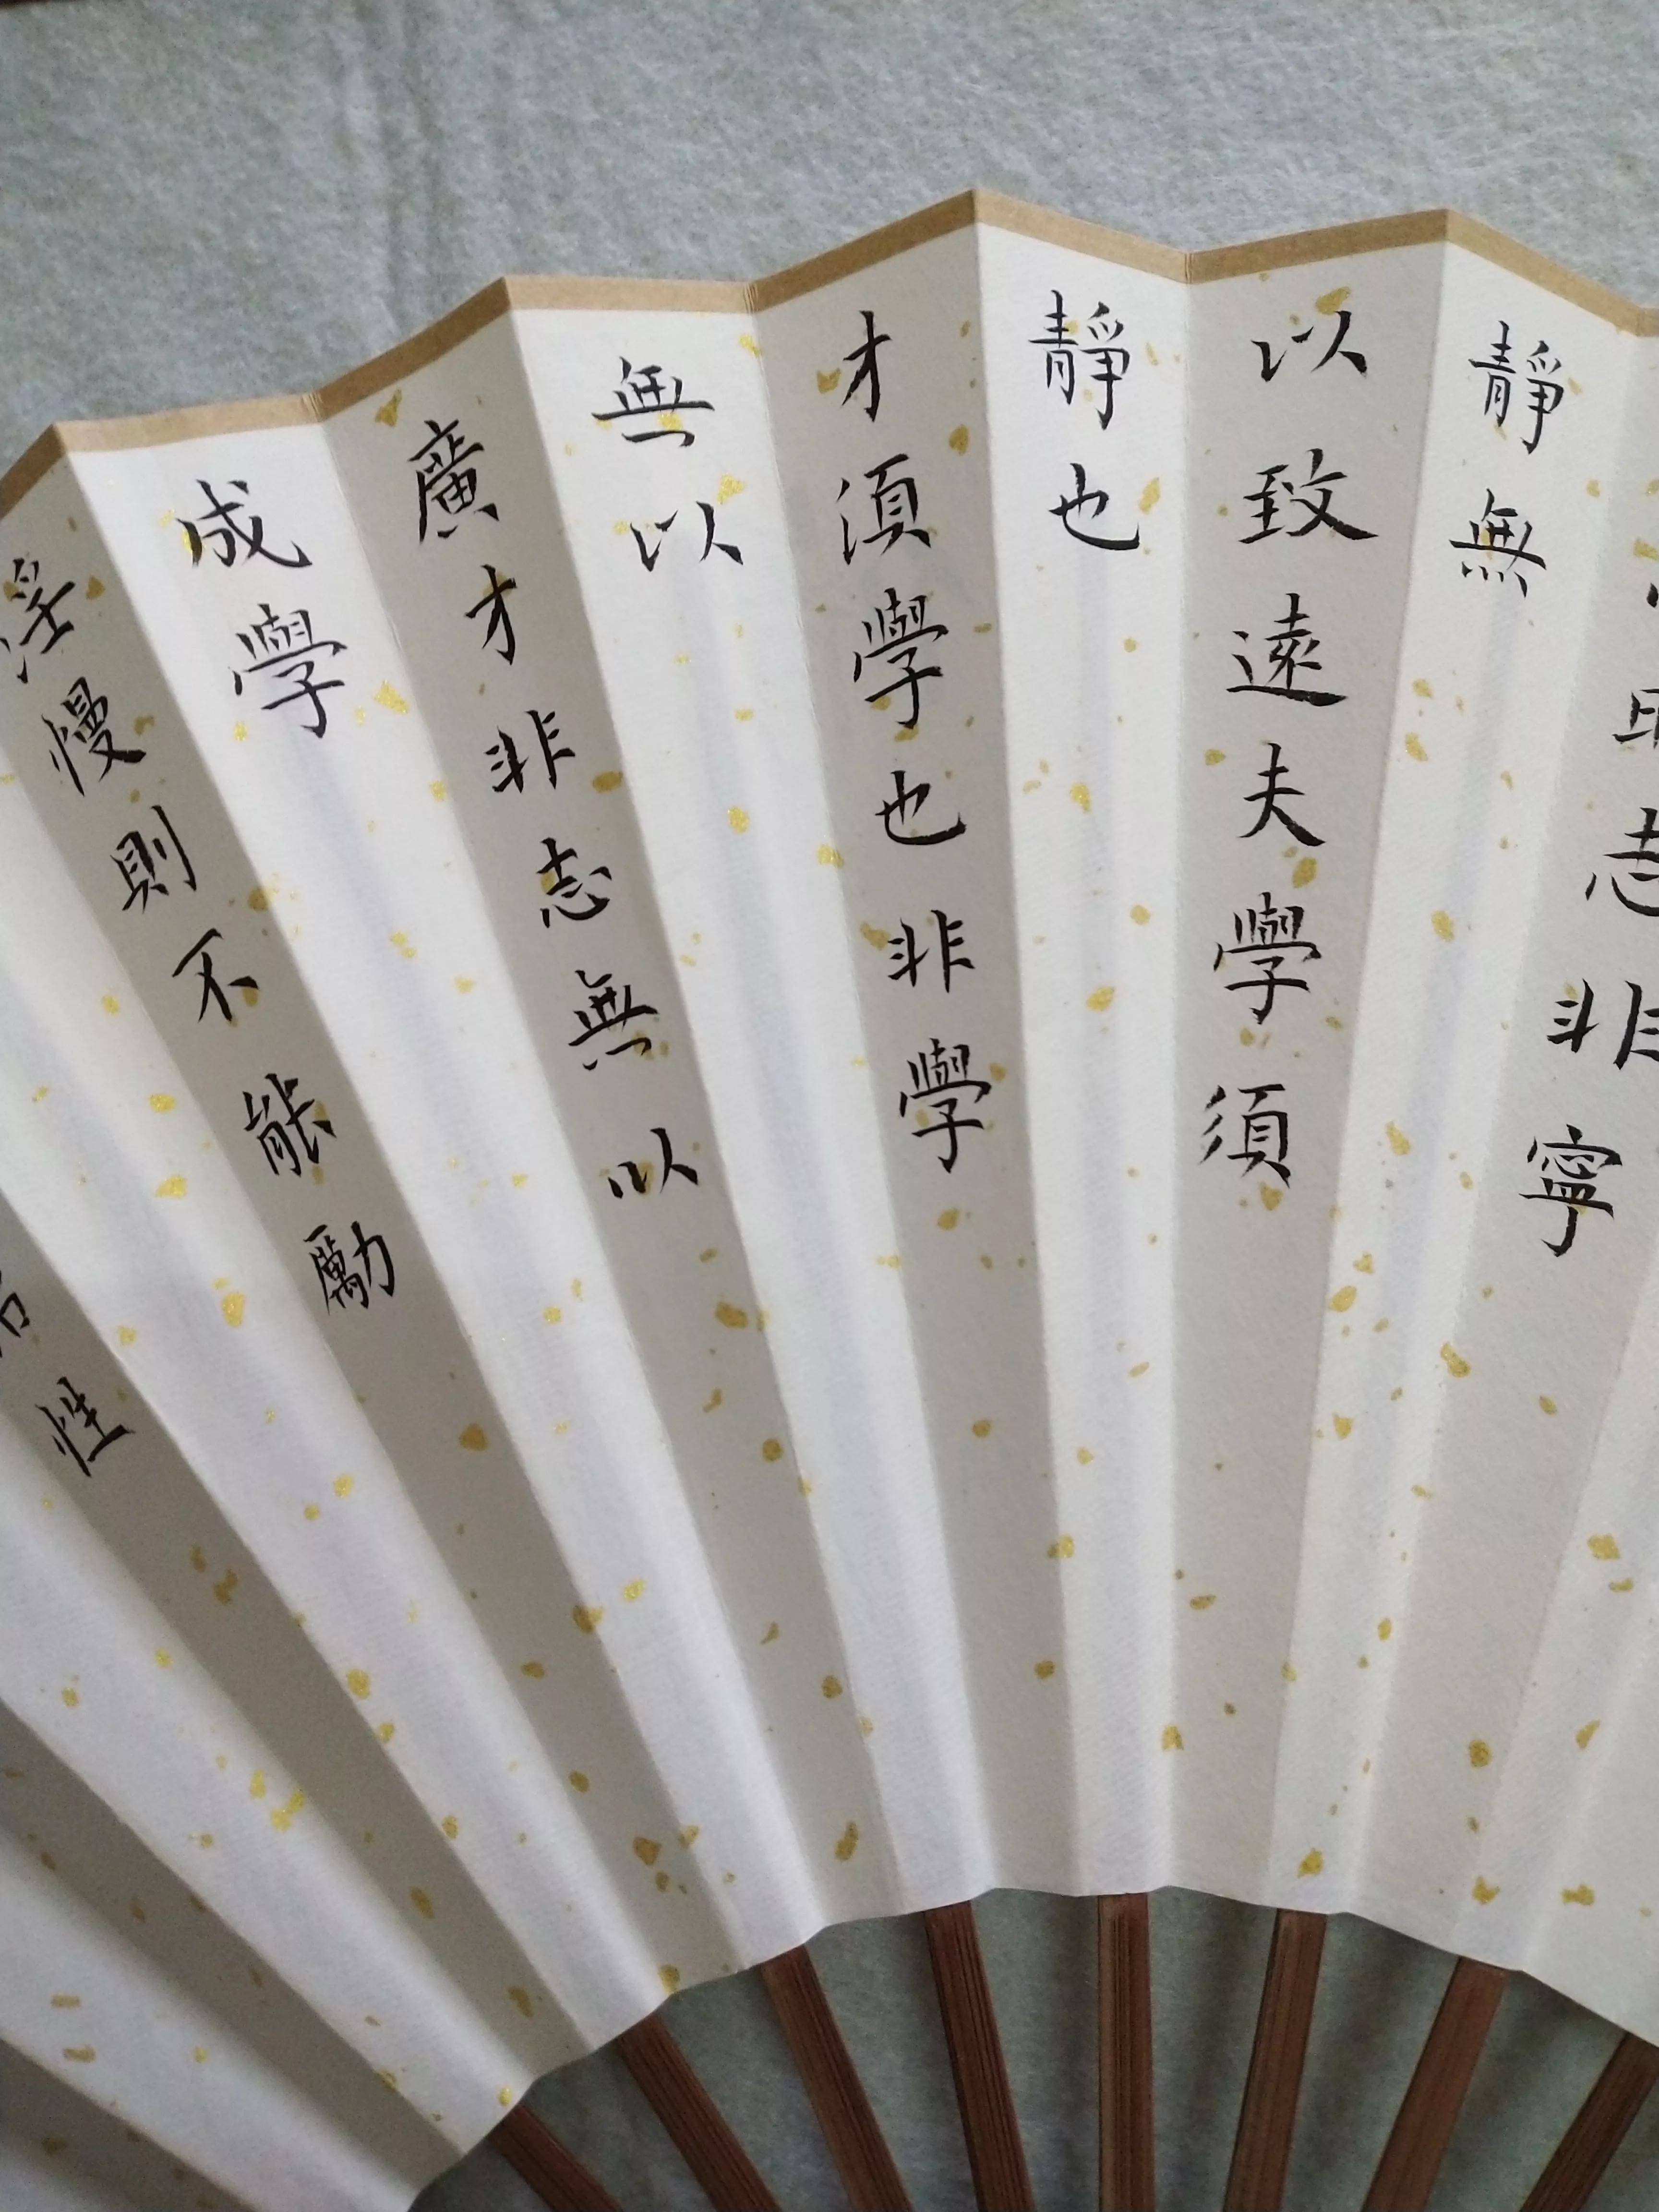 志非寧
靜無
以致遠夫學須
靜也
才須學也非學
無以
廣才非志無以
成學
淫慢則不能勵
性